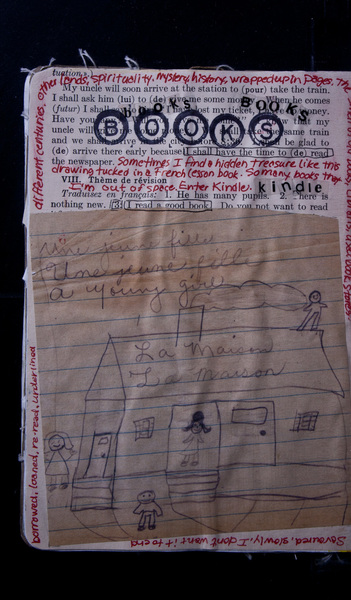 other lands, spirituality, mystery, history, wrapped up in pages. The
different centuries,
My uncle will soon arrive at the station to (pour) take the train.
I shall ask him (lui) to (de) give me some more. When he comes
(futur) I shall say to him: I have lost my ticket,
BOOKS BOOKS
BOOKS
Have you
uncle will same train
and we shall be glad to
(de) arrive there early because I shall have the time to (de) read
the newspaper. Sometimes I find a hidden treasure like this
drawing tucked in a french lesson book. So many books that
VIII. Thème de révision
I'm out of space. Enter Kindle. kindle
Traduisez en français: 1. He has many pupils. 2. There is
nothing new. 3. I read a good book. Do you not want to read
Une jeune fille
Une jeune fille
A young girl
La Maison
La Maison
borrowed, loaned, re-read, underlined
Savoured, slowly, I dont want it to end